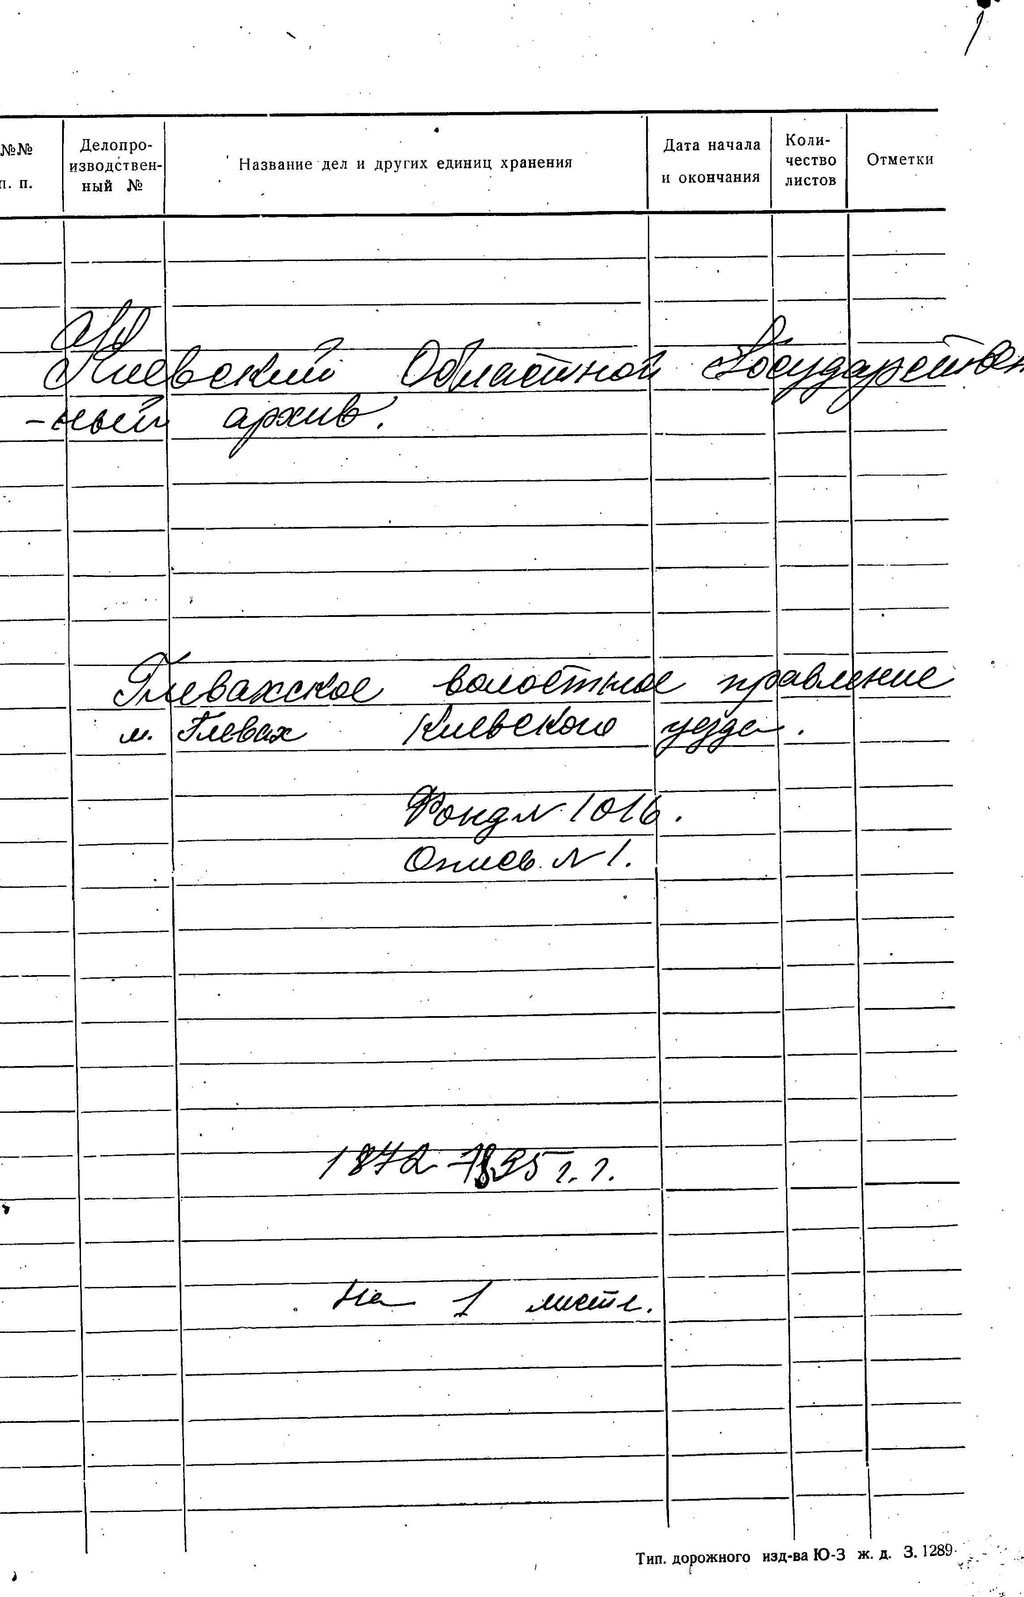 №№ п. п.
Делопроизводственный №
Название дел и других единиц хранения
Дата начала и окончания
Количество листов
Отметки
Киевский Областной Государствен
-ный архив.
Глевахское волостное правление
м. Глевах Киевского уезда.
Фонд № 1016.
Опись № 1.
1872-1895 г. г.
На 1 листе.
Тип. дорожного изд-ва Ю-З ж. д. З. 1289